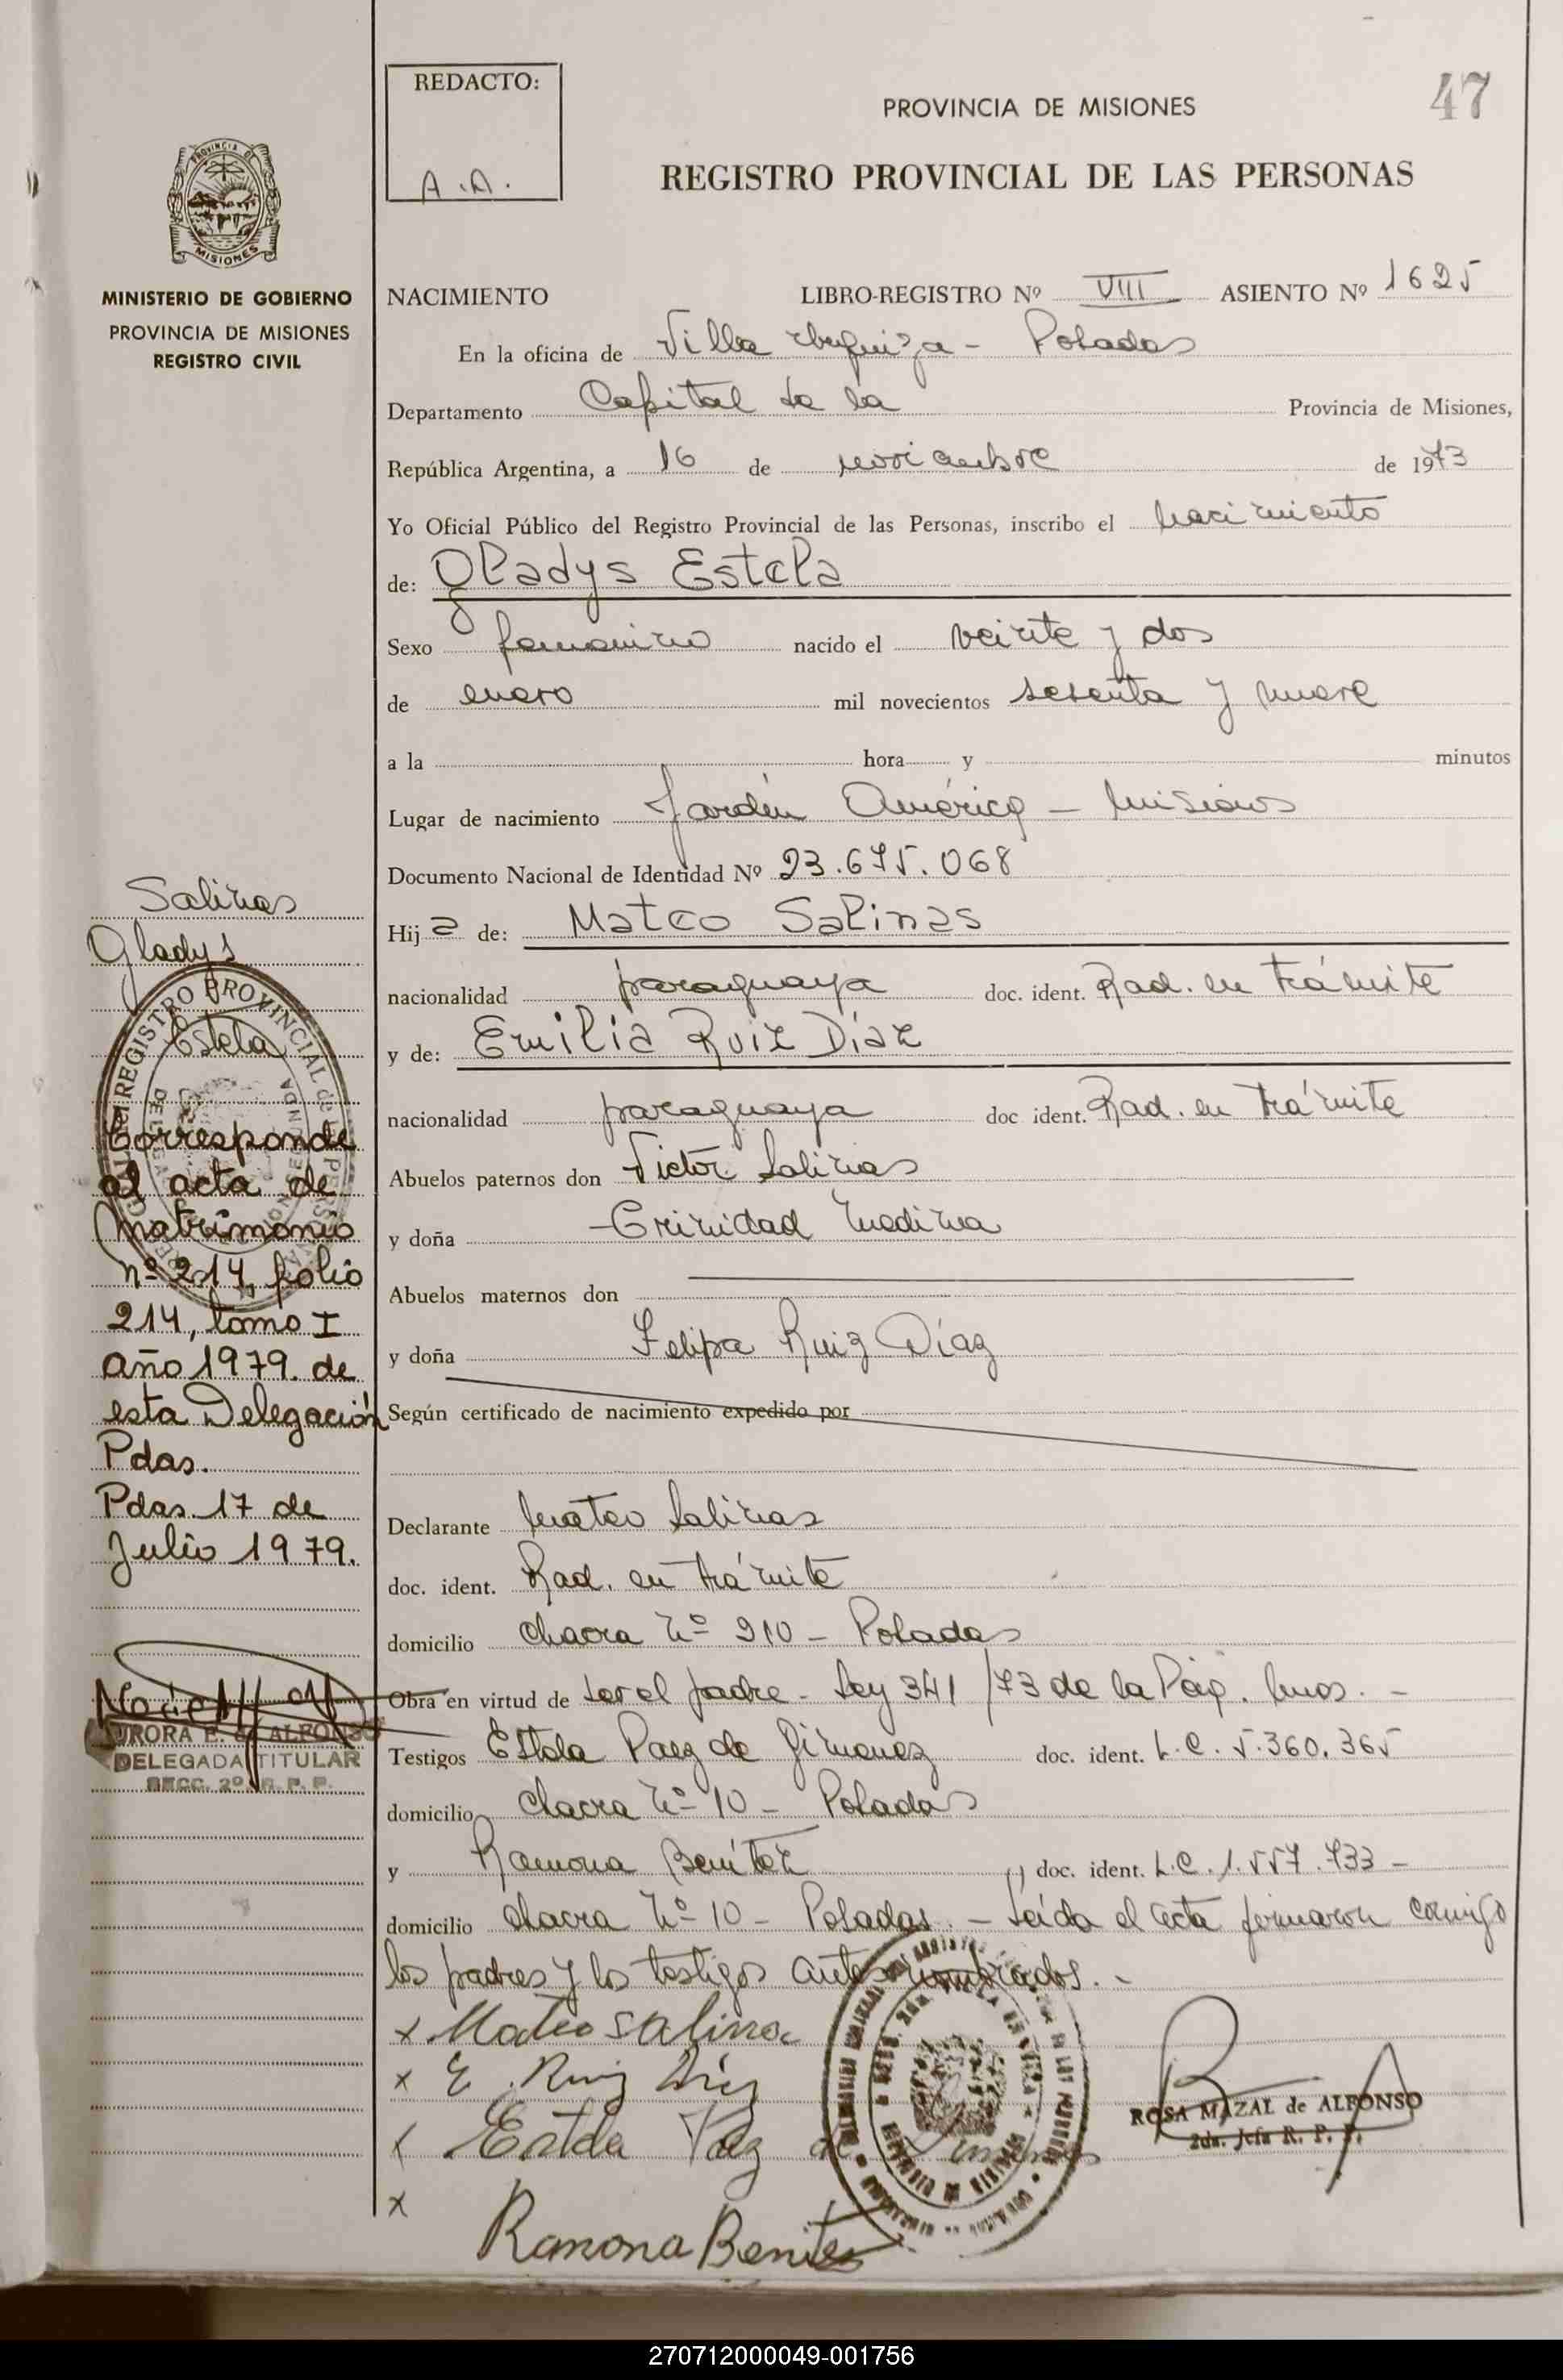 REDACTO:
A.A.
PROVINCIA DE MISIONES
47
REGISTRO PROVINCIAL DE LAS PERSONAS
MISIONES
MINISTERIO DE GOBIERNO
PROVINCIA DE MISIONES
REGISTRO CIVIL
NACIMIENTO LIBRO-REGISTRO Nº VIII ASIENTO Nº 1625
En la oficina de Villa Urquiza - Posadas
Departamento Capital de la Provincia de Misiones,
República Argentina, a 16 de noviembre de 1973
Yo Oficial Público del Registro Provincial de las Personas, inscribo el nacimiento
de: Gladys Estela
Sexo femenino nacido el veinte y dos
de enero mil novecientos sesenta y nueve
a la hora y minutos
Lugar de nacimiento Jardín América - Misiones
Documento Nacional de Identidad Nº 23.675.068
Hija de: Mateo Salinas
nacionalidad paraguaya doc. ident. Rad. en trámite
y de: Emilia Ruiz Díaz
nacionalidad paraguaya doc ident. Rad. en trámite
Abuelos paternos don Victor Salinas
y doña Trinidad Medina
Abuelos maternos don
y doña Felipa Ruiz Díaz
Según certificado de nacimiento expedido por
Declarante Mateo Salinas
doc. ident. Rad. en trámite
domicilio chacra Nº 210 - Posadas
Obra en virtud de ser el padre - Ley 341/73 de la Pcia. Mnes. -
Testigos Estela Paez de Gimenez doc. ident. L.C. 5.360.365
domicilio chacra Nº 10 - Posadas
y Ramona Benítez doc. ident. L.C. 1.557.733 -
domicilio chacra Nº 10 - Posadas. - Leída el acta firmaron conmigo
los padres y los testigos antes nombrados. -
x Mateo Salinas
x E. Ruiz Díaz
x Estela Paez de Gimenez
x
Ramona Benitez
ROSA MAZAL de ALFONSO
2da. Jefa R. P. P.
Salinas
Gladys
Estela
REGISTRO PROVINCIAL de
Corresponde
al acta de
Matrimonio
nº 214, folio
214, tomo I
año 1979. de
esta Delegación
Pdas.
Pdas. 17 de
Julio 1979.
AURORA E. de ALFONSO
DELEGADA TITULAR
SECC. 2º R. P. P.
270712000049-001756